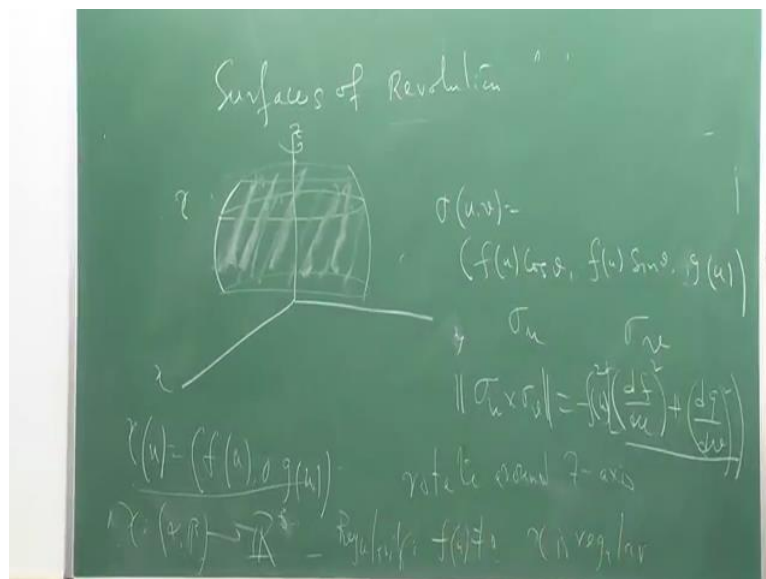 Surfaces of Revolution
z
γ
σ(u,v)=
(f(u) Cos v, f(u) Sin v, g(u))
σ_u σ_v
y
x
‖σ_u × σ_v‖ = f(u)²((df/du)² + (dg/du)²)
γ(u) = (f(u), 0, g(u))
rotate around z-axis
γ: (α, β) → ℝ³ – Regularity: f(u) ≠ 0, γ is regular